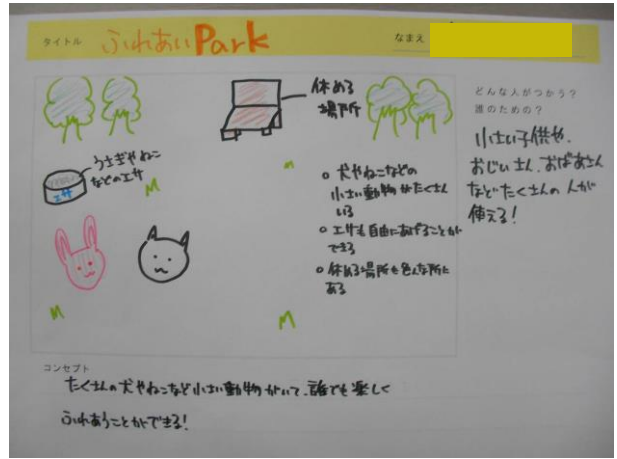 タイトル ふれあいPark
なまえ
休める
場所
うさぎやねこ
などのエサ
エサ
。犬やねこなどの
小さい動物がたくさん
いる
。エサも自由にあげることが
できる
。休める場所も色んな所に
ある
どんな人がつかう?
誰のための?
小さい子供や、
おじいさん、おばあさん
などたくさんの人が
使える!
コンセプト
たくさんの犬やねこなど小さい動物がいて、誰でも楽しく
ふれあうことができる!